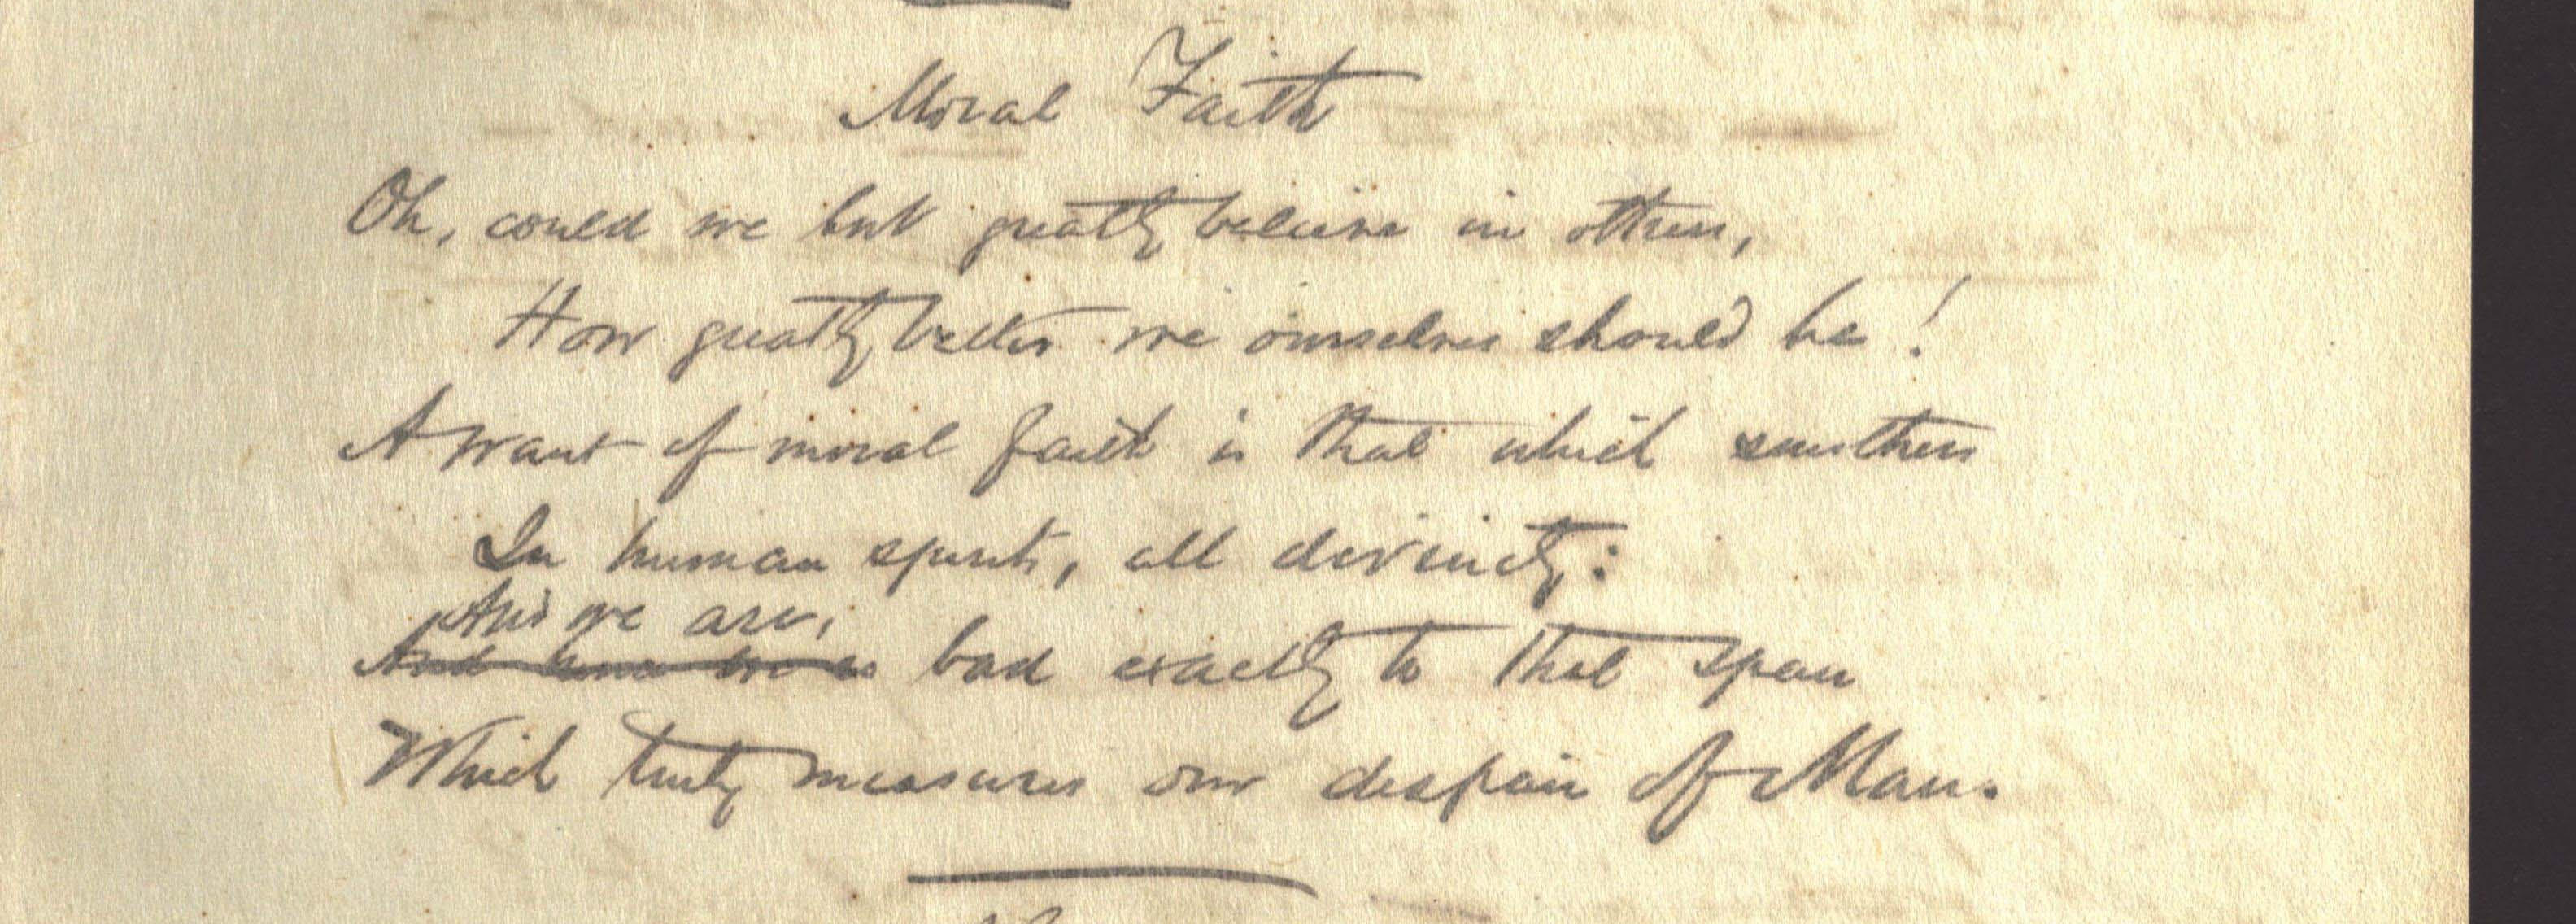 Moral Faith
Oh, could we but greatly believe in others,
How greatly better we ourselves should be!
A want of moral faith is that which smothers
In human spirits, all divinity:
And we are,
And bad exactly to that span
Which truly measures our despair of Man.